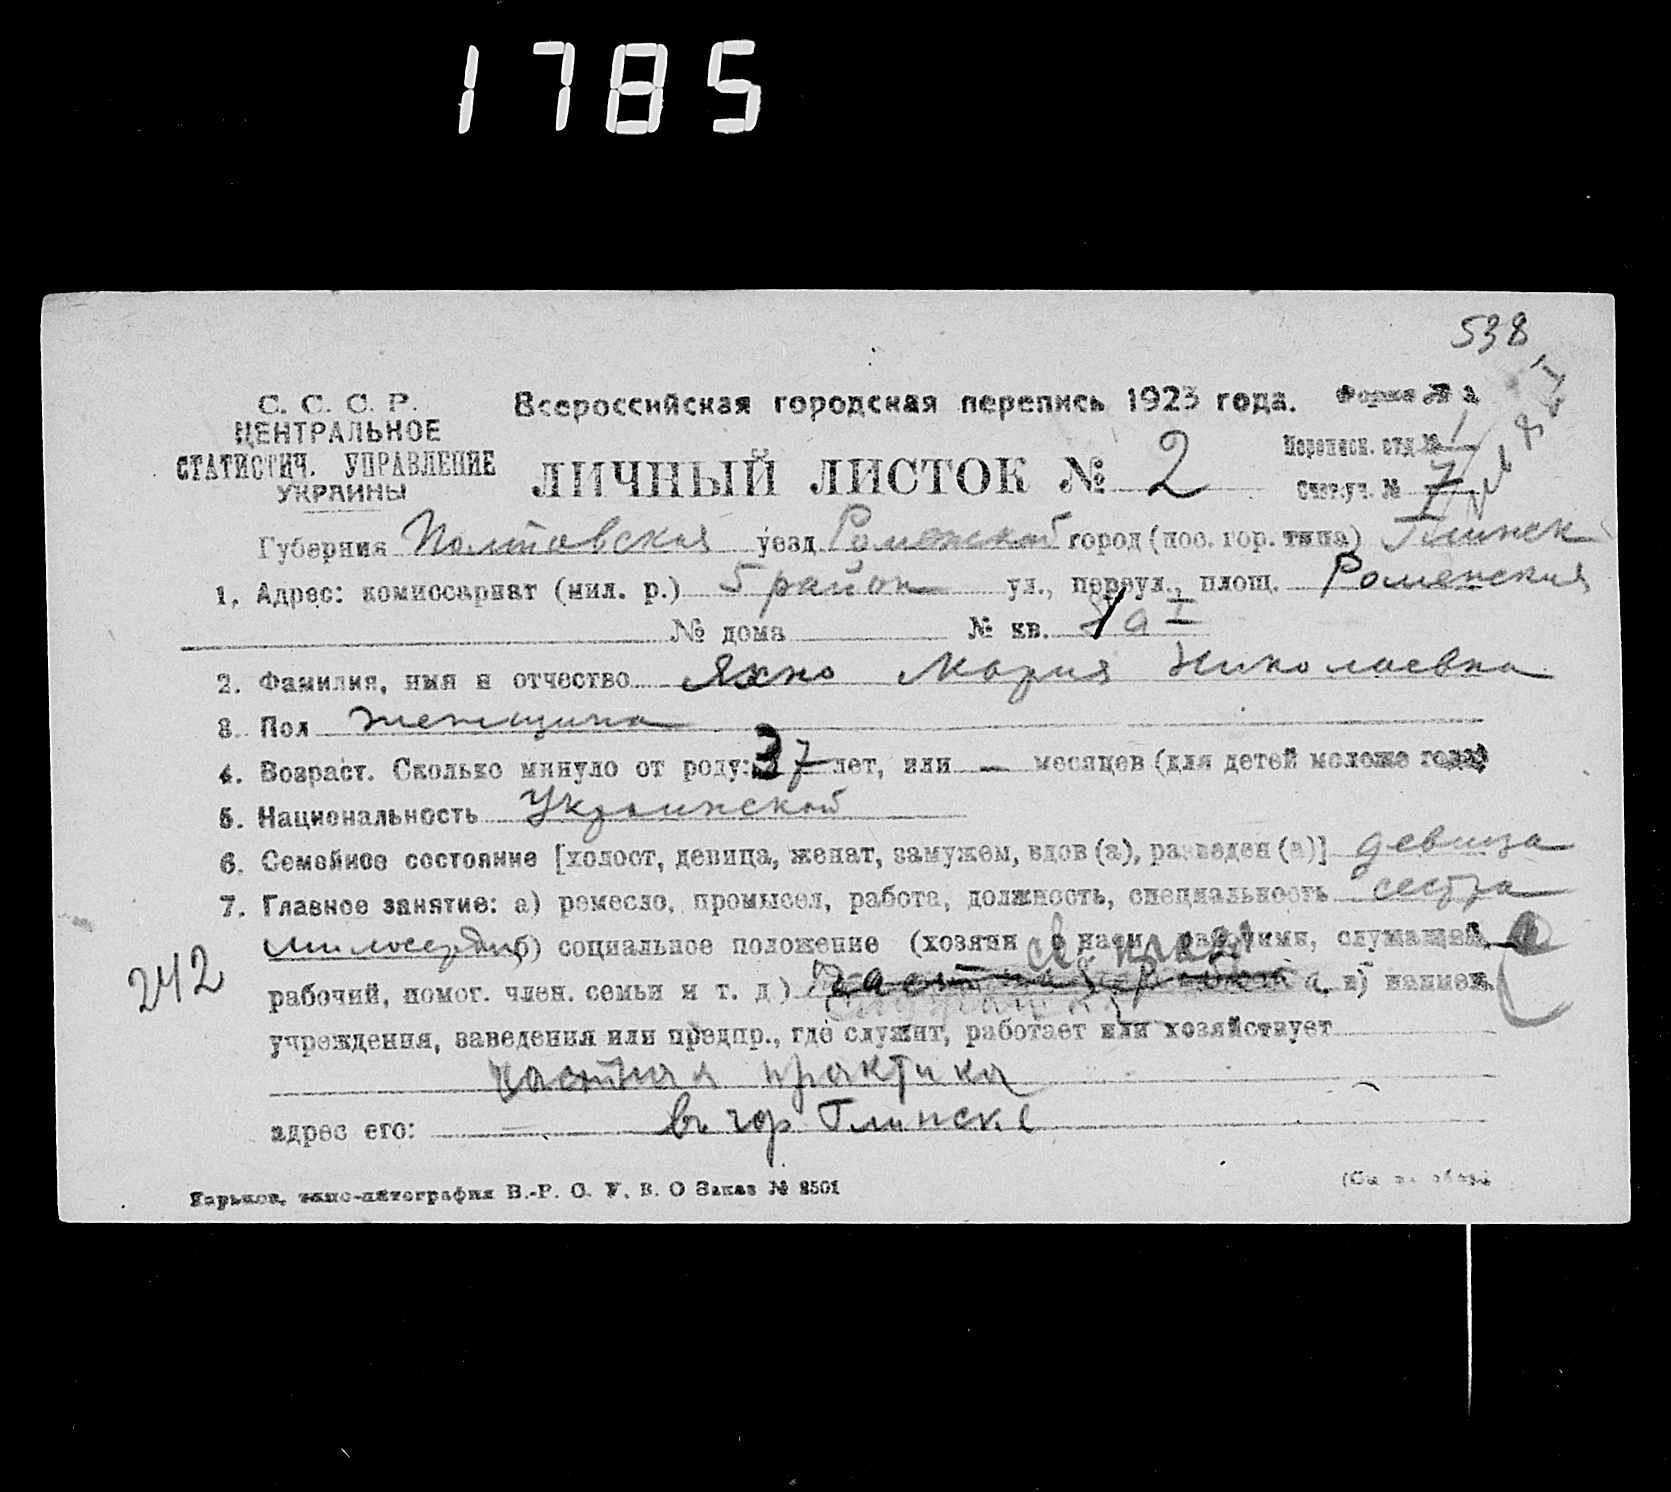 1785
538
С. С. С. Р.
ЦЕНТРАЛЬНОЕ
СТАТИСТИЧ. УПРАВЛЕНИЕ
УКРАИНЫ
Всероссийская городская перепись 1923 года.
Форма №
ЛИЧНЫЙ ЛИСТОК № 2
Переписн. отд. № 1
Счет. уч. № 7
Губерния Полтавская уезд Роменский город (пос. гор. типа) Глинск
1. Адрес: комиссариат (мил. р.) 5 район ул., переул., площ. Роменская
№ дома № кв.
2. Фамилия, имя и отчество Яхно Мария Николаевна
3. Пол женщина
4. Возраст. Сколько минуло от роду: 37 лет, или — месяцев (для детей моложе года)
5. Национальность Украинской
6. Семейное состояние [холост, девица, женат, замужем, вдов (а), разведен (а)] девица
7. Главное занятие: а) ремесло, промысел, работа, должность, специальность сестра
милосердия б) социальное положение (хозяин с наемн. рабочими, служащий,
242
рабочий, помог. член. семьи и т. д) в) наимен.
учреждения, заведения или предпр., где служит, работает или хозяйствует
частная практика
адрес его: в гор. Глинске
Харьков, типо-литография В.-Р. О. У. В. О Заказ № 2501